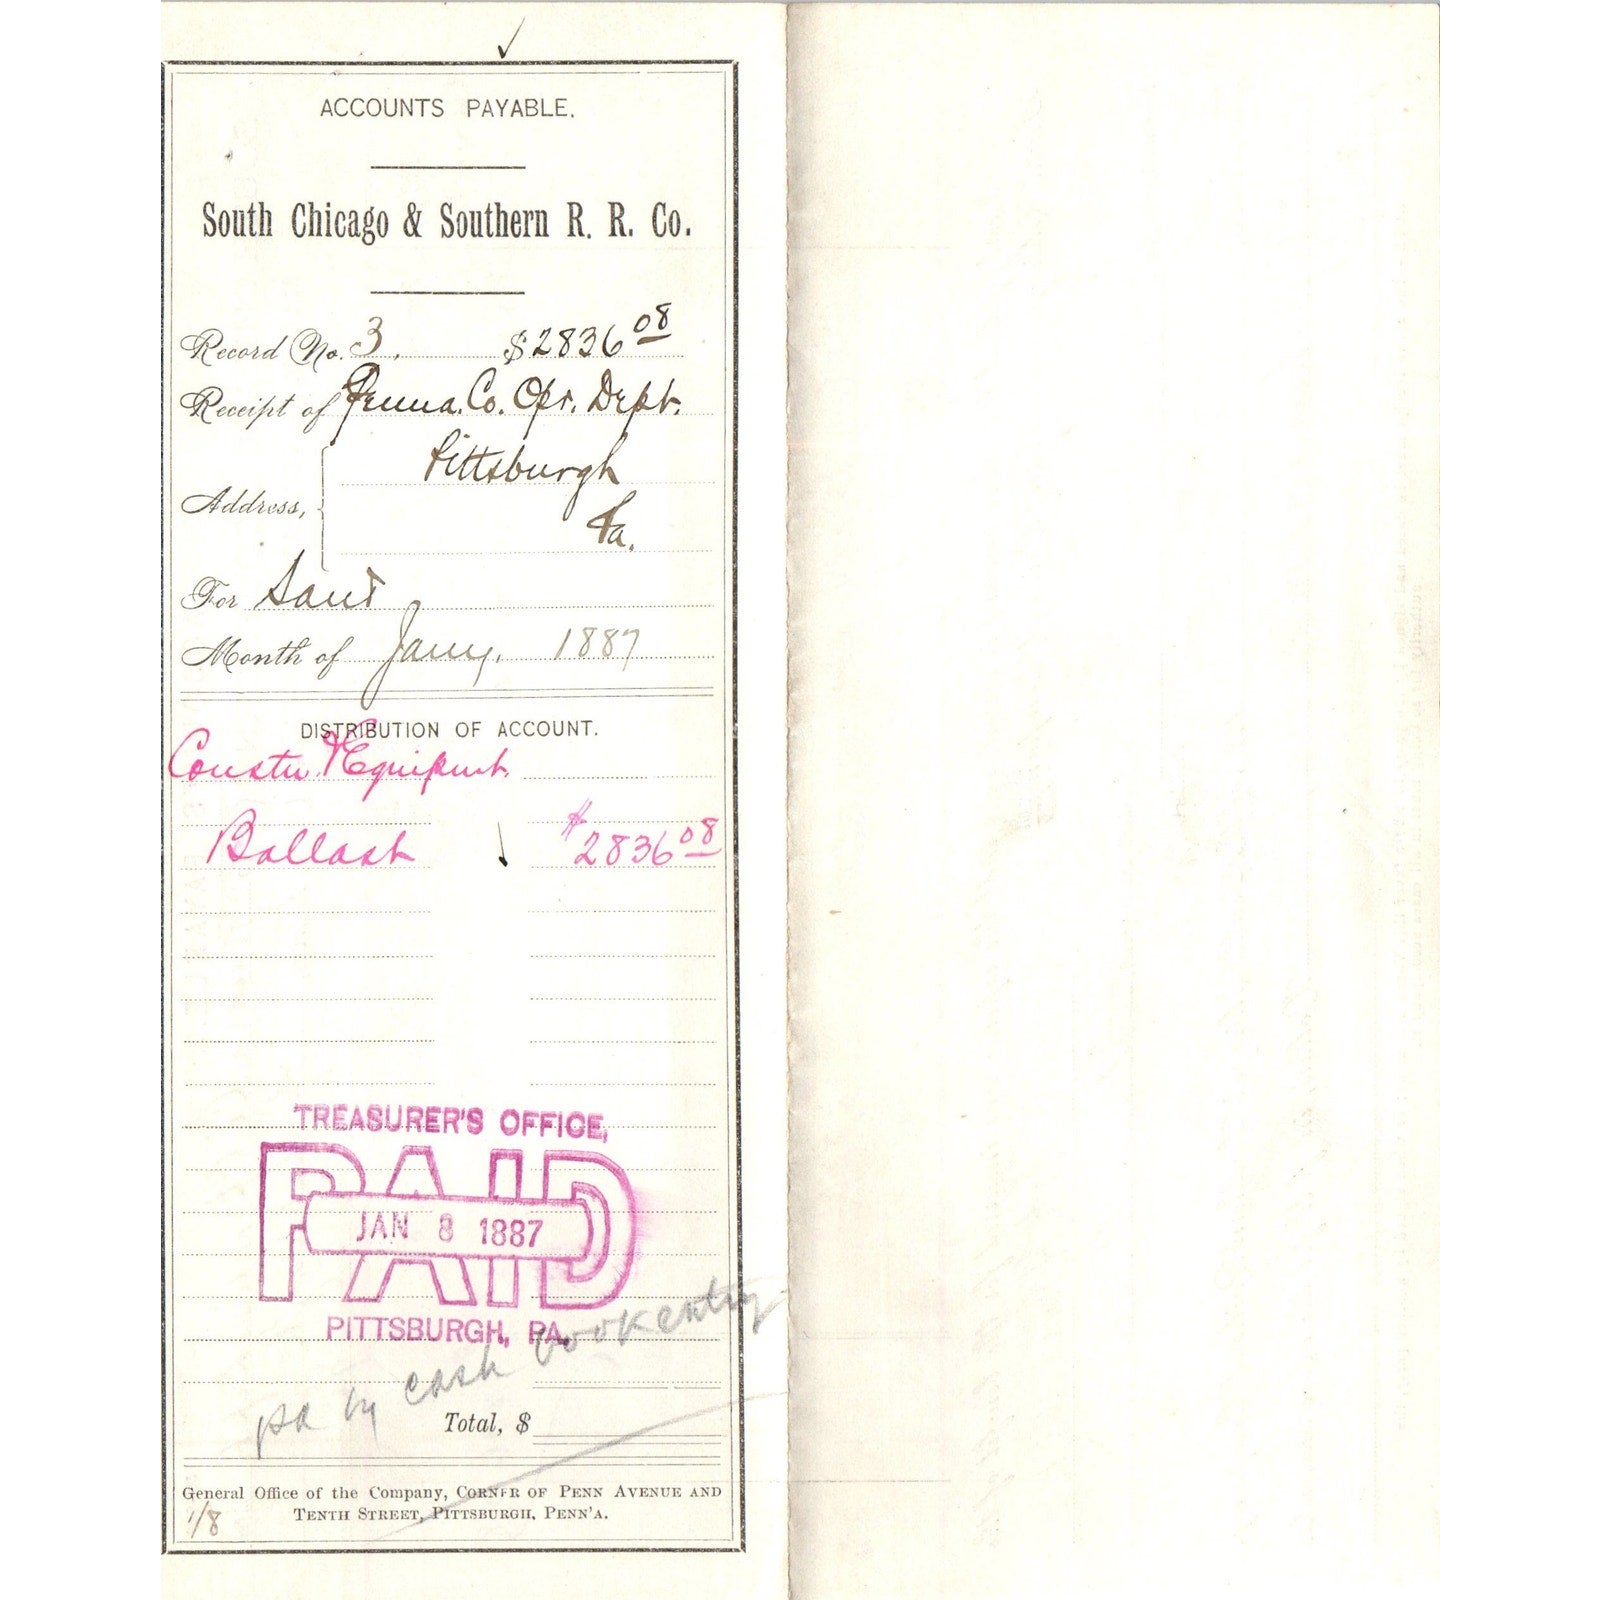 ACCOUNTS PAYABLE.
South Chicago & Southern R. R. Co.
Record No. 3. $2836 08
Receipt of Penna. Co. Opr. Dept.
Pittsburgh
Address,
Pa.
For Sand
Month of Jany. 1887
DISTRIBUTION OF ACCOUNT.
Constn & Equipmt.
Ballast $2836 08
TREASURER'S OFFICE,
PAID
JAN 8 1887
PITTSBURGH, PA.
pd by cash book entry
Total, $
General Office of the Company, CORNER OF PENN AVENUE AND
TENTH STREET, PITTSBURGH, PENN'A.
1/8